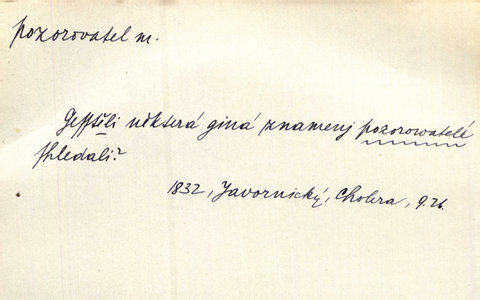 pozorovatel m.
Gesstili některá giná znamenj pozorowatelé
shledali?
1832, Javornický, Cholera, 9.26.